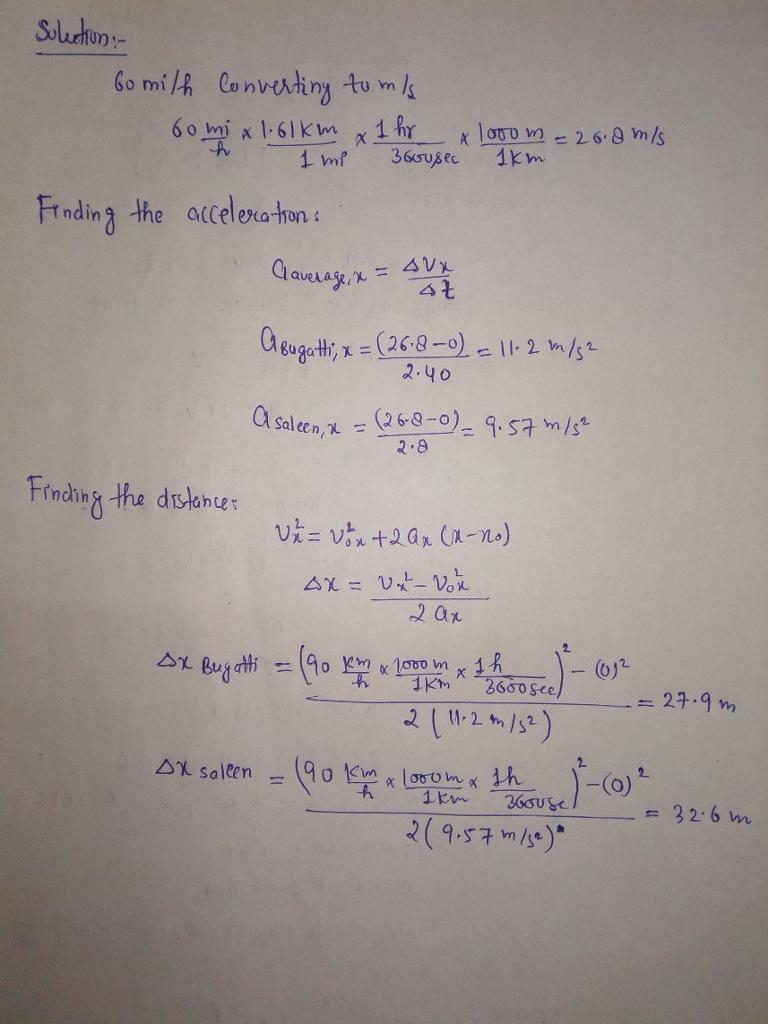 Solution:-
60 mi/h Converting to m/s
60 mi/h x 1.61 Km/1 mi x 1 hr/3600sec x 1000 m/1Km = 26.8 m/s
Finding the acceleration:
a average, x = ΔVx/Δt
a Bugatti, x = (26.8-0)/2.40 = 11.2 m/s²
a saleen, x = (26.8-0)/2.8 = 9.57 m/s²
Finding the distance:
Vx² = V0x² + 2ax (x-x0)
Δx = Vx² - V0x²/2ax
Δx Bugatti = (90 Km/h x 1000 m/1Km x 1h/3600sec)² - (0)²/2(11.2 m/s²) = 27.9 m
Δx saleen = (90 Km/h x 1000m/1Km x 1h/3600sc)² - (0)²/2(9.57 m/s²) = 32.6 m